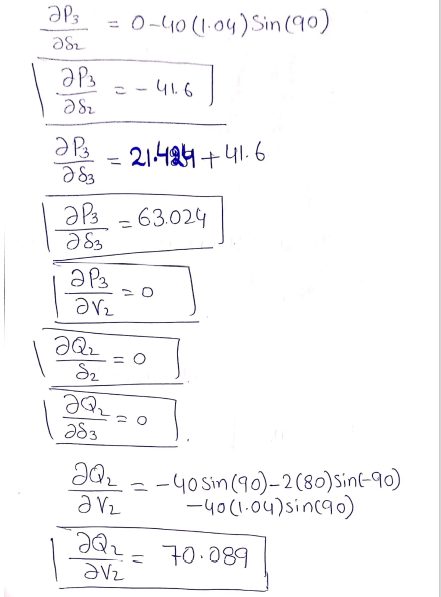 ∂P₃/∂δ₂ = 0-40(1.04)Sin(90)
∂P₃/∂δ₂ = -41.6
∂P₃/∂δ₃ = 21.424+41.6
∂P₃/∂δ₃ = 63.024
∂P₃/∂V₂ = 0
∂Q₂/δ₂ = 0
∂Q₂/∂δ₃ = 0
∂Q₂/∂V₂ = -40sin(90)-2(80)sin(-90)
-40(1.04)sin(90)
∂Q₂/∂V₂ = 70.089